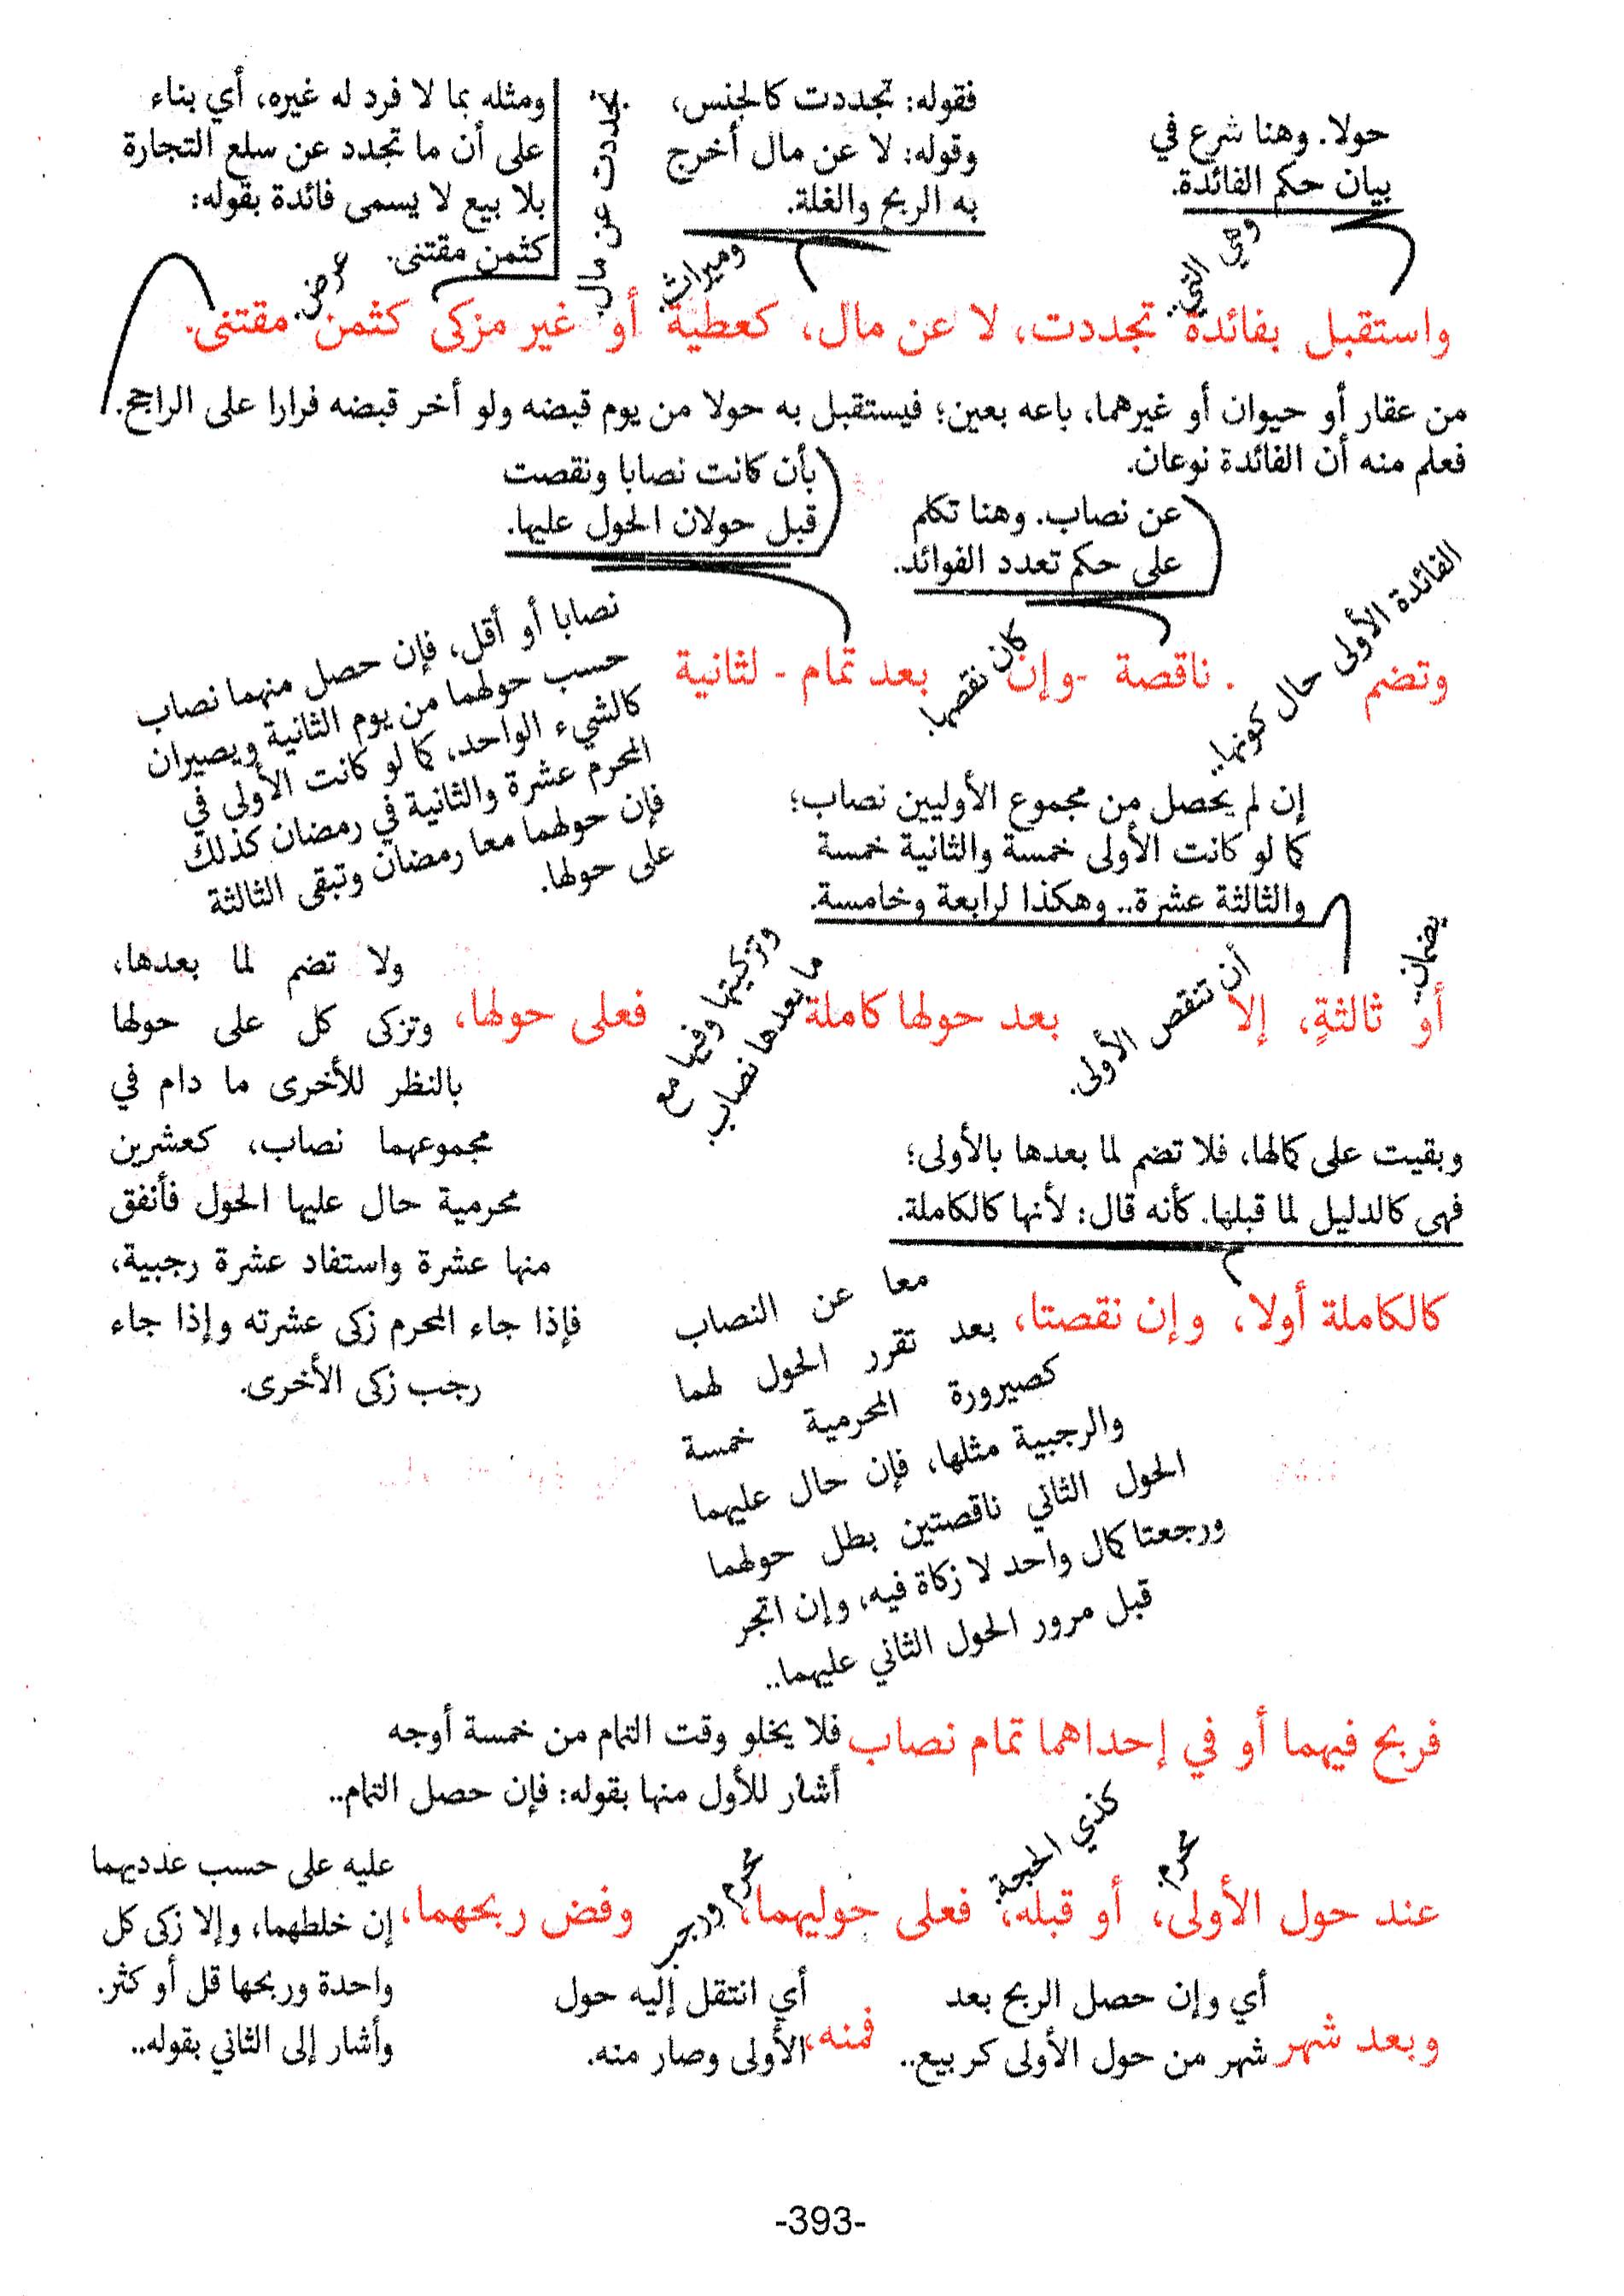 حولا. وهنا شرع في
بيان حكم الفائدة.
فقوله: تجددت كالجنس،
وقوله: لا عن مال أخرج
به الربح والغلة.
تجددت عن مال.
ومثله بما لا فرد له غيره، أي بناء
على أن ما تجدد عن سلع التجارة
بلا بيع لا يسمى فائدة بقوله:
كثمن مقتنى.
وهي التي..
وميراث.
عرض.
واستقبل بفائدة تجددت، لا عن مال، كعطية أو غير مزكى كثمن مقتنى.
من عقار أو حيوان أو غيرهما، باعه بعين؛ فيستقبل به حولا من يوم قبضه ولو أخر قبضه فرارا على الراجح.
فعلم منه أن الفائدة نوعان.
عن نصاب. وهنا تكلم
على حكم تعدد الفوائد.
بأن كانت نصابا ونقصت
قبل حولان الحول عليها.
الفائدة الأولى حال كونها..
كان نقصها.
وتضم . ناقصة -وإن بعد تمام - لثانية
نصابا أو أقل، فإن حصل منهما نصاب
حسب حولهما من يوم الثانية ويصيران
كالشيء الواحد، كما لو كانت الأولى في
المحرم عشرة والثانية في رمضان كذلك
فإن حولهما معا رمضان وتبقى الثالثة
على حولها.
إن لم يحصل من مجموع الأوليين نصاب؛
كما لو كانت الأولى خمسة والثانية خمسة
والثالثة عشرة.. وهكذا لرابعة وخامسة.
يضمان..
أن تنقص الأولى.
وتزكيتها وفيها مع
ما بعدها نصاب
أو ثالثةٍ، إلا بعد حولها كاملة فعلى حولها،
ولا تضم لما بعدها،
وتزكى كل على حولها
بالنظر للأخرى ما دام في
مجموعهما نصاب، كعشرين
محرمية حال عليها الحول فأنفق
منها عشرة واستفاد عشرة رجبية،
فإذا جاء المحرم زكى عشرته وإذا جاء
رجب زكى الأخرى.
وبقيت على كمالها، فلا تضم لما بعدها بالأولى؛
فهي كالدليل لما قبلها. كأنه قال: لأنها كالكاملة.
كالكاملة أولا، وإن نقصتا،
معا عن النصاب
بعد تقرر الحول لهما
كصيرورة المحرمية خمسة
والرجبية مثلها، فإن حال عليهما
الحول الثاني ناقصتين بطل حولهما
ورجعتا كمال واحد لا زكاة فيه، وإن اتجر
قبل مرور الحول الثاني عليهما..
فربح فيهما أو في إحداهما تمام نصاب
فلا يخلو وقت التمام من خمسة أوجه
أشار للأول منها بقوله: فإن حصل التمام..
محرم.
كذي الحجة.
محرم ورجب
عند حول الأولى، أو قبله، فعلى حوليهما، وفض ربحهما،
عليه على حسب عدديهما
إن خلطهما، وإلا زكى كل
واحدة وربحها قل أو كثر.
وأشار إلى الثاني بقوله..
وبعد شهر
أي وإن حصل الربح بعد
شهر من حول الأولى كربيع..
فمنه،
أي انتقل إليه حول
الأولى وصار منه.
-393-